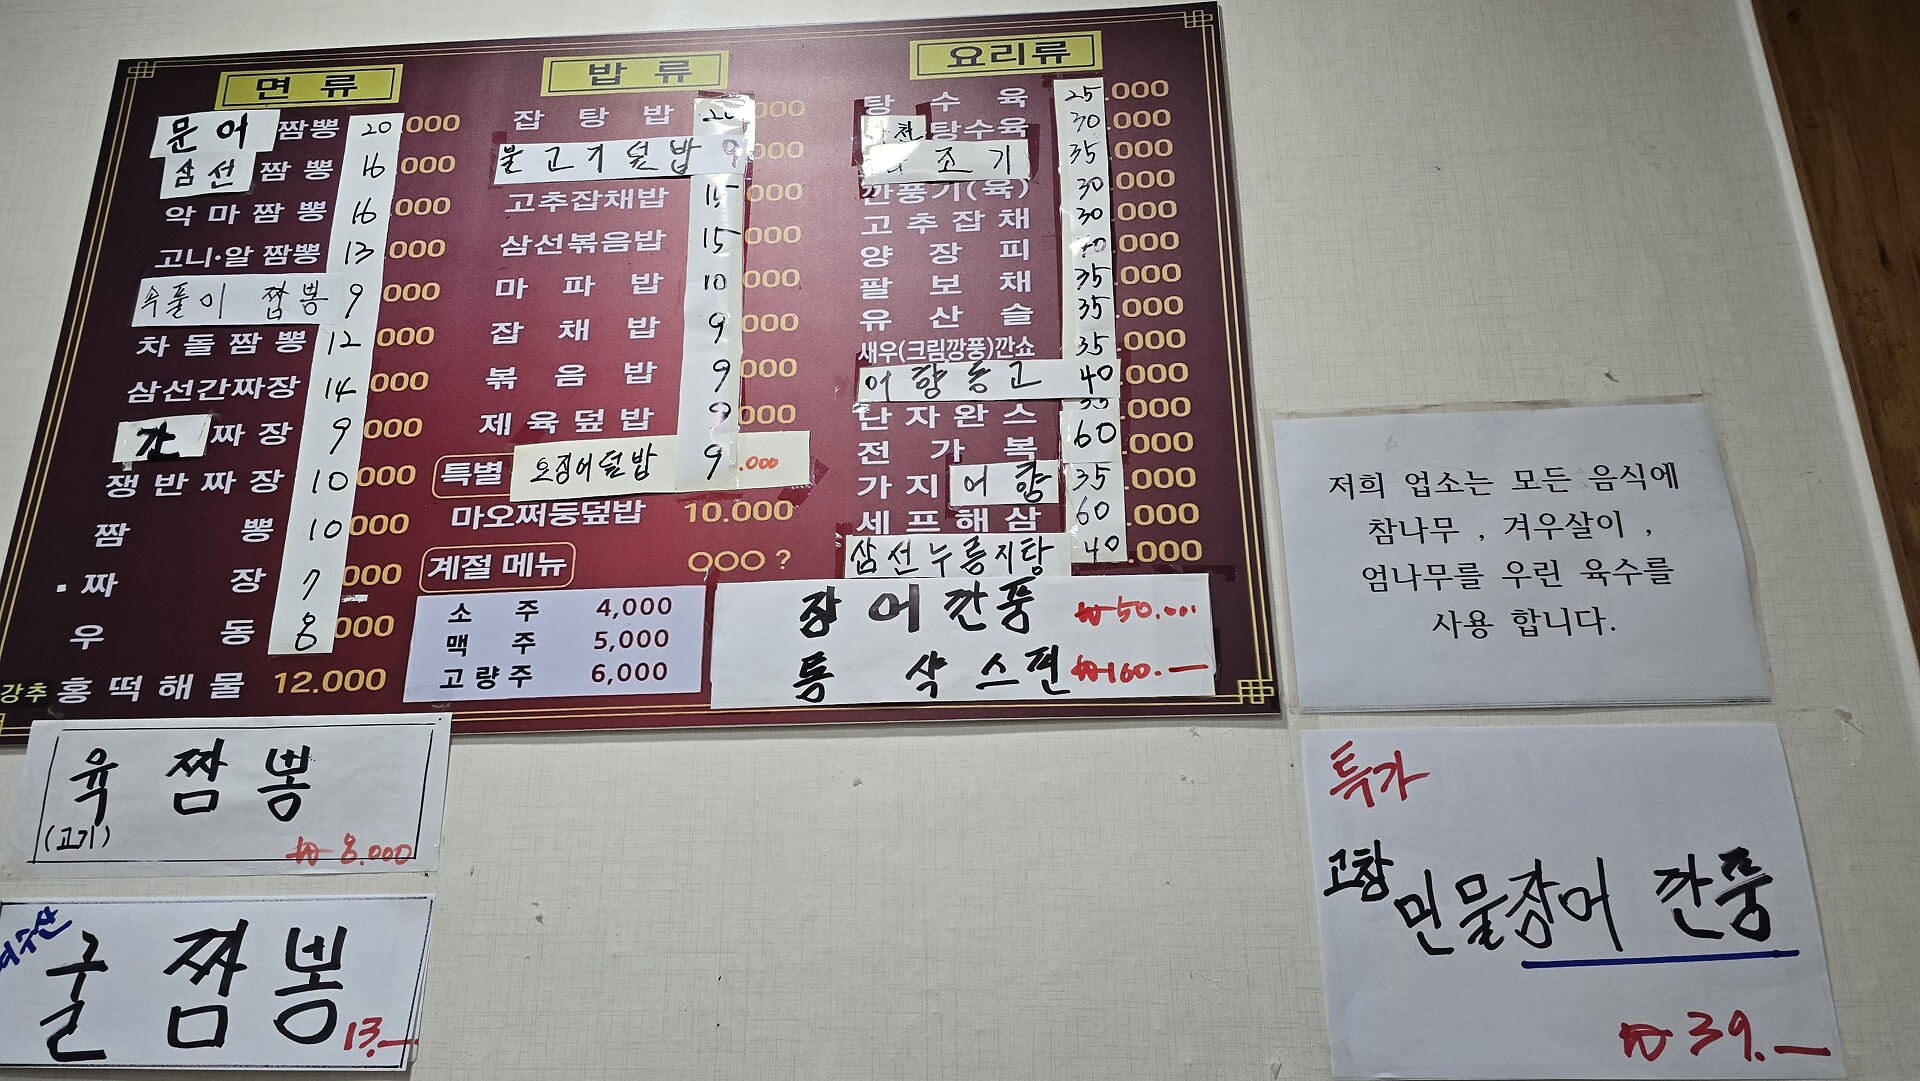 면 류
문어 짬뽕 20.000
삼선 짬뽕 16.000
악마짬뽕 16.000
고니·알짬뽕 13.000
짬뽕 9.000
차돌짬뽕 12.000
삼선간짜장 14.000
간 짜장 9.000
쟁반짜장 10.000
짬 뽕 10.000
짜 장 7.000
우 동 8.000
강추 홍떡해물 12.000
밥 류
잡탕밥 20.000
불고기덮밥 9.000
고추잡채밥 15.000
삼선볶음밥 15.000
마파밥 10.000
잡채밥 9.000
볶음밥 9.000
제육덮밥 9.000
특별 오징어덮밥 9.000
마오쩌둥덮밥 10.000
계절 메뉴 OOO ?
소 주 4,000
맥 주 5,000
고량주 6,000
요리류
탕수육 25.000
탕수육 30.000
조기 35.000
깐풍기(육) 30.000
고추잡채 30.000
양장피 .000
팔보채 35.000
유산슬 35.000
새우(크림깡풍)깐쇼 35.000
어향동고 40.000
난자완스 35.000
전가복 60.000
가지 어향 35.000
세프해삼 60.000
삼선누룽지탕 40.000
장어깐풍 ₩50.000
통 샥스핀 ₩160.—
저희 업소는 모든 음식에
참나무 , 겨우살이 ,
엄나무를 우린 육수를
사용 합니다.
육짬뽕
(고기)
₩8.000
여수산
굴짬뽕
13.—
특가
고창 민물장어 깐풍
₩39.—